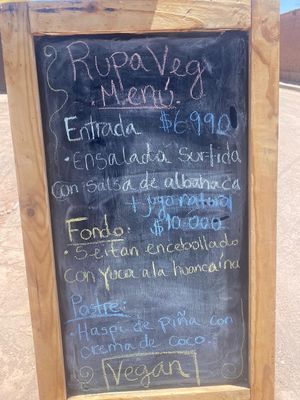 RupaVeg
Menú.
Entrada $6990
• Ensalada Surtida
con salsa de albahaca
+ jugo natural
Fondo: $10.000
• Seitan encebollado
con Yuca a la huancaína
Postre:
• Haspi de piña con
crema de coco.
Vegan